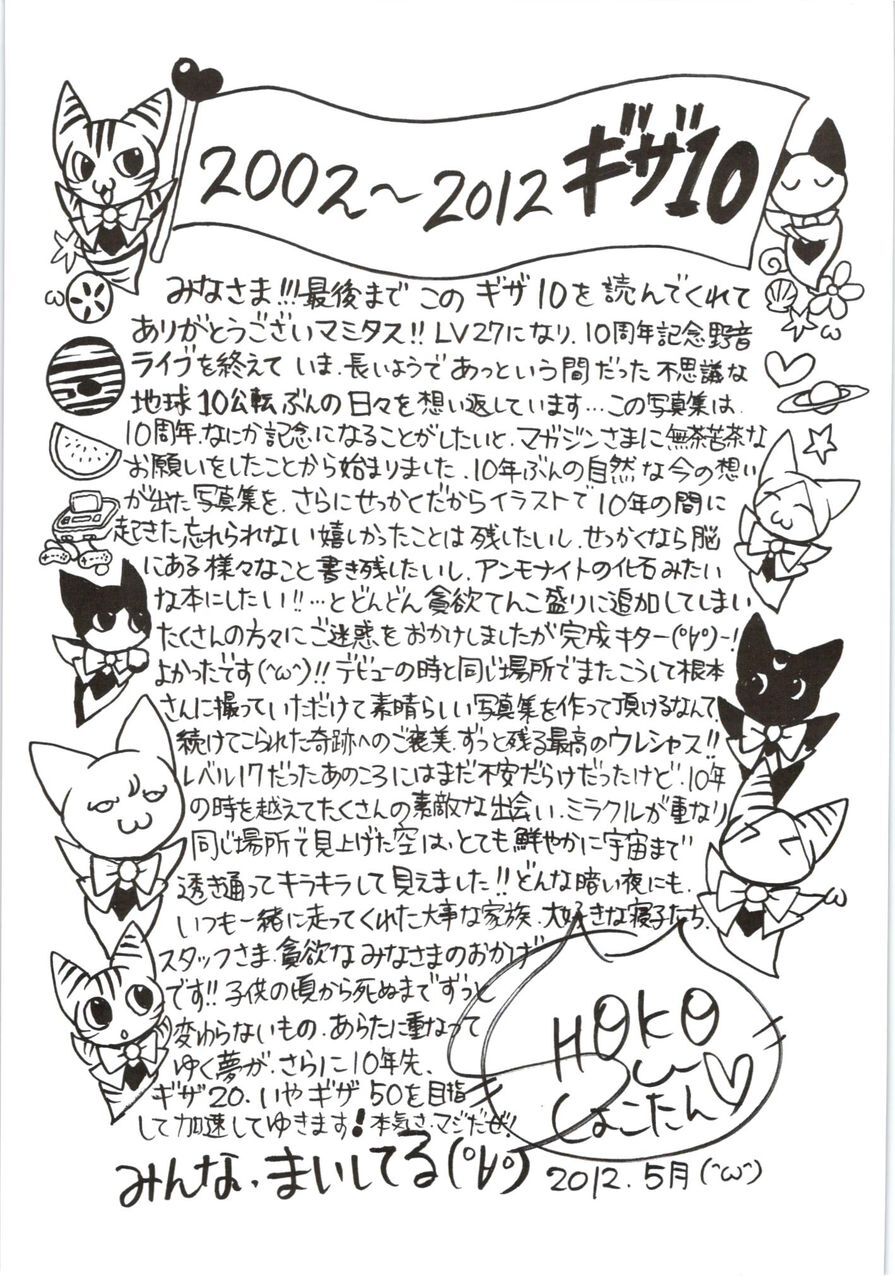 2002〜2012 ギザ10
みなさま!!!最後まで このギザ10を読んでくれて
ありがとうございマミタス!! LV27になり、10周年記念野音
ライブを終えて いま、長いようであっという間だった不思議な
地球10公転ぶんの日々を想い返しています…この写真集は、
10周年、なにか記念になることがしたいと、マガジンさまに無茶苦茶な
お願いをしたことから始まりました、10年ぶんの自然な今の想い
が出た写真集を、さらにせっかくだからイラストで10年の間に
起きた忘れられない嬉しかったことは残したいし、せっかくなら脳
にある様々なこと書き残したいし、アンモナイトの化石みたい
な本にしたい!!…とどんどん貪欲てんこ盛りに追加してしまい
たくさんの方々にご迷惑をおかけしましたが完成キター(°∀°)ー!
よかったです(^ω^)!! デビューの時と同じ場所でまたこうして根本
さんに撮っていただけて素晴らしい写真集を作って頂けるなんて、
続けてこられた奇跡へのご褒美、ずっと残る最高のウレシャス!!
レベル17だったあのころにはまだ不安だらけだったけど、10年
の時を越えてたくさんの素敵な出会い、ミラクルが重なり
同じ場所で見上げた空は、とても鮮やかに宇宙まで
透き通ってキラキラして見えました!!どんな暗い夜にも、
いつも一緒に走ってくれた大事な家族、大好きな寝子たち、
スタッフさま、貪欲なみなさまのおかげ
です!! 子供の頃から死ぬまでずっと
変わらないもの、あらたに重なって
ゆく夢が、さらに10年先、
ギザ20、いやギザ50を目指
して加速してゆきます!本気さ、マジだぜ!
HOKO
しょこたん♡
みんな、まいしてる(°∀°)
2012.5月(^ω^)